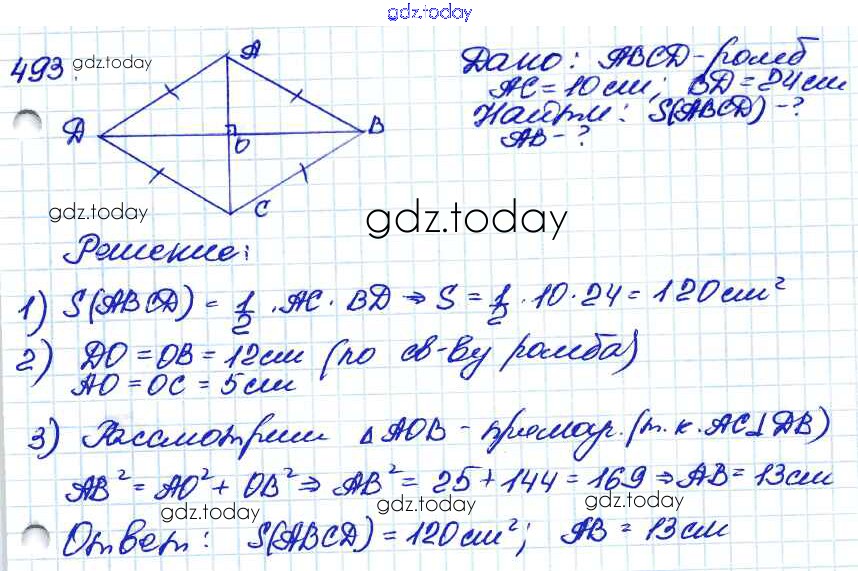 gdz.today
493 gdz.today
A
D
B
O
C
Дано: ABCD-ромб
AC=10см; BD=24см
Найти: S(ABCD)-?
AB-?
gdz.today
gdz.today
Решение:
1) S(ABCD) = 1/2 · AC · BD ⇒ S = 1/2 · 10 · 24 = 120см²
2) DO = OB = 12см (по св-ву ромба)
AO = OC = 5см
3) Рассмотрим △AOB - прямоуг. (т.к. AC⊥DB)
AB² = AO² + OB² ⇒ AB² = 25 + 144 = 169 ⇒ AB = 13см
gdz.today gdz.today gdz.today
Ответ: S(ABCD) = 120см²; AB = 13см